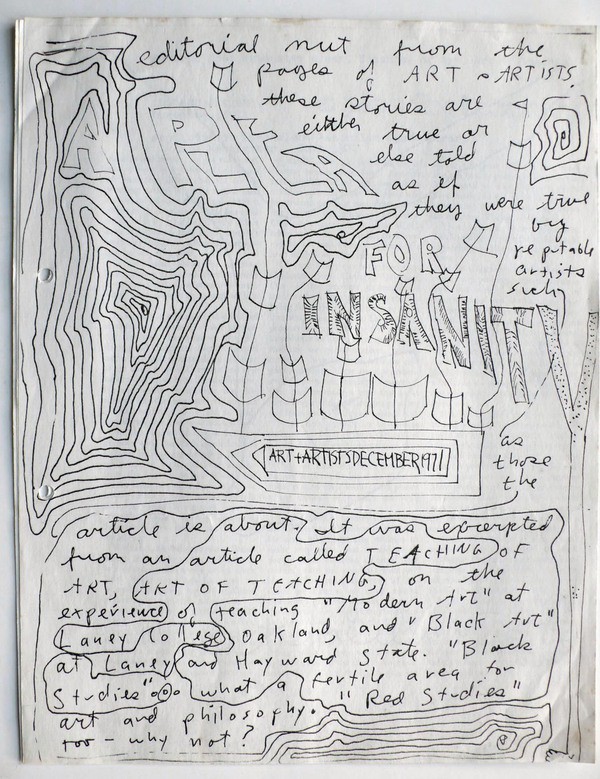 editorial nut from the
pages of ART & ARTISTS.
these stories are
either true or
else told
as if
they were true
by
reputable
artists
such
A PLEA
FOR
INSANITY
as
those
the
ART+ARTISTSDECEMBER1971
article is about. It was excerpted
from an article called TEACHING OF
ART, ART OF TEACHING, on the
experience of teaching "Modern Art" at
Laney College Oakland, and "Black Art"
at Laney and Hayward State. "Black
Studies" what a fertile area for
art and philosophy. "Red Studies"
too - why not?